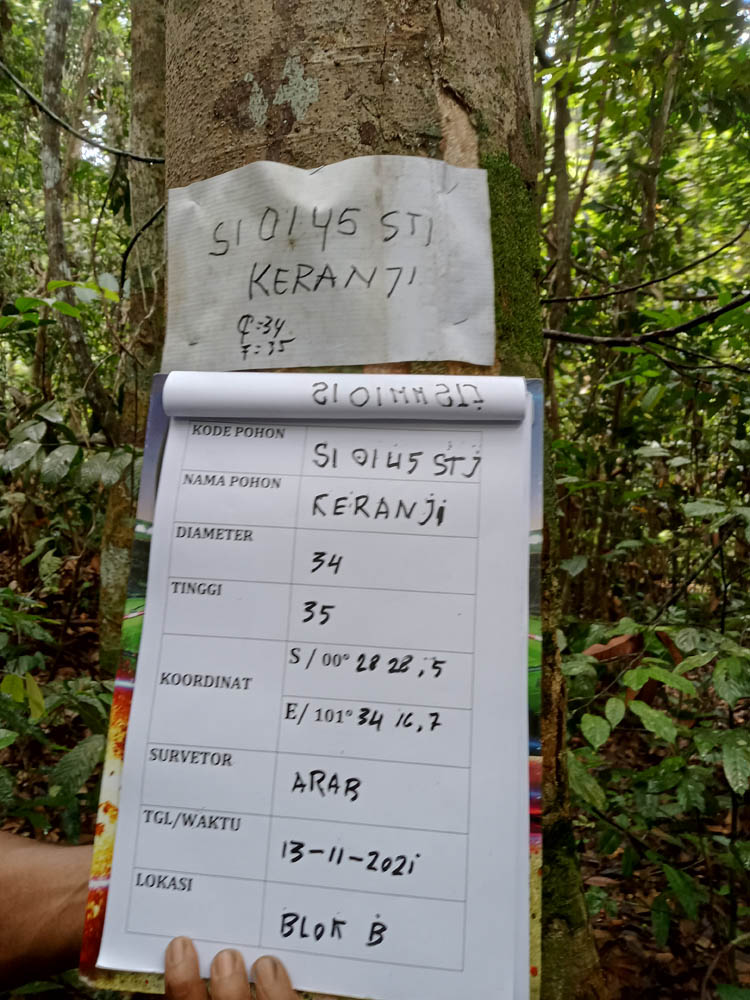 SI 0145 STJ
KERANJI
F=35
KODE POHON SI 0145 STJ
NAMA POHON KERANJI
DIAMETER 34
TINGGI 35
KOORDINAT
S / 00° 28 28,5
E/ 101° 34 16,7
SURVETOR ARAB
TGL/WAKTU 13-11-2021
LOKASI BLOK B